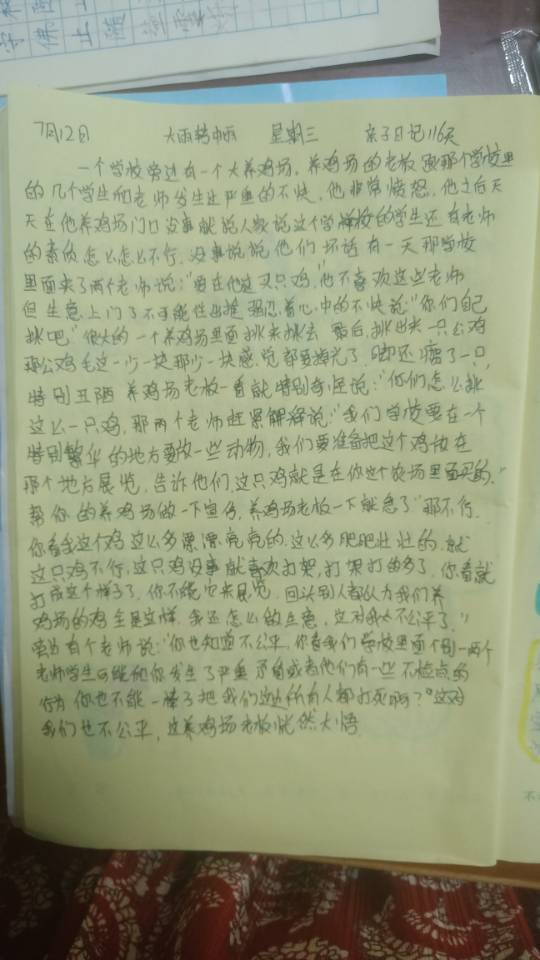 7月12日 大雨转中雨 星期三 亲子日记116天
一个学校旁边有一个大养鸡场,养鸡场的老板跟那个学校里
的几个学生和老师发生过严重的不快,他非常愤怒,他之后天
天在他养鸡场门口没事就说人家说这个学校的学生还有老师
的素质怎么怎么不行,没事说说他们坏话有一天那学校
里面来了两个老师说:"要在他这买只鸡,"他不喜欢这些老师
但生意上门了不可能往出推 强忍着心中的不快说:"你们自己
挑吧"很大的一个养鸡场里面挑来挑去 最后,挑出来一只公鸡
那公鸡毛这一少一块那少一块感觉都要掉光了,脚还瘸了一只,
特别丑陋 养鸡场老板一看就特别奇怪说:"你们怎么挑
这么一只鸡,那两个老师赶紧解释说:"我们学校要在一个
特别繁华的地方要放一些动物,我们要准备把这个鸡放在
那个地方展览,告诉他们,这只鸡就是在你这个农场里面买的,"
帮你的养鸡场做一下宣传,养鸡场老板一下就急了"那不行,
你看我这个鸡这么多漂漂亮亮的,这么多肥肥壮壮的,就
这只鸡不行,这只鸡没事就喜欢打架,打架打的多了,你看就
打成这个样子了,你不能它来展览,回头别人都认为我们养
鸡场的鸡全是这样,我还怎么做生意,这对我太不公平了,"
有个老师说:"你也知道不公平,你看我们学校里面个别一两个
老师学生可能和你发生了严重 或者他们有一些不检点的
行为 你也不能一棒子把我们这所有人都打死啊?"这对
我们也不公平,这养鸡场老板恍然大悟